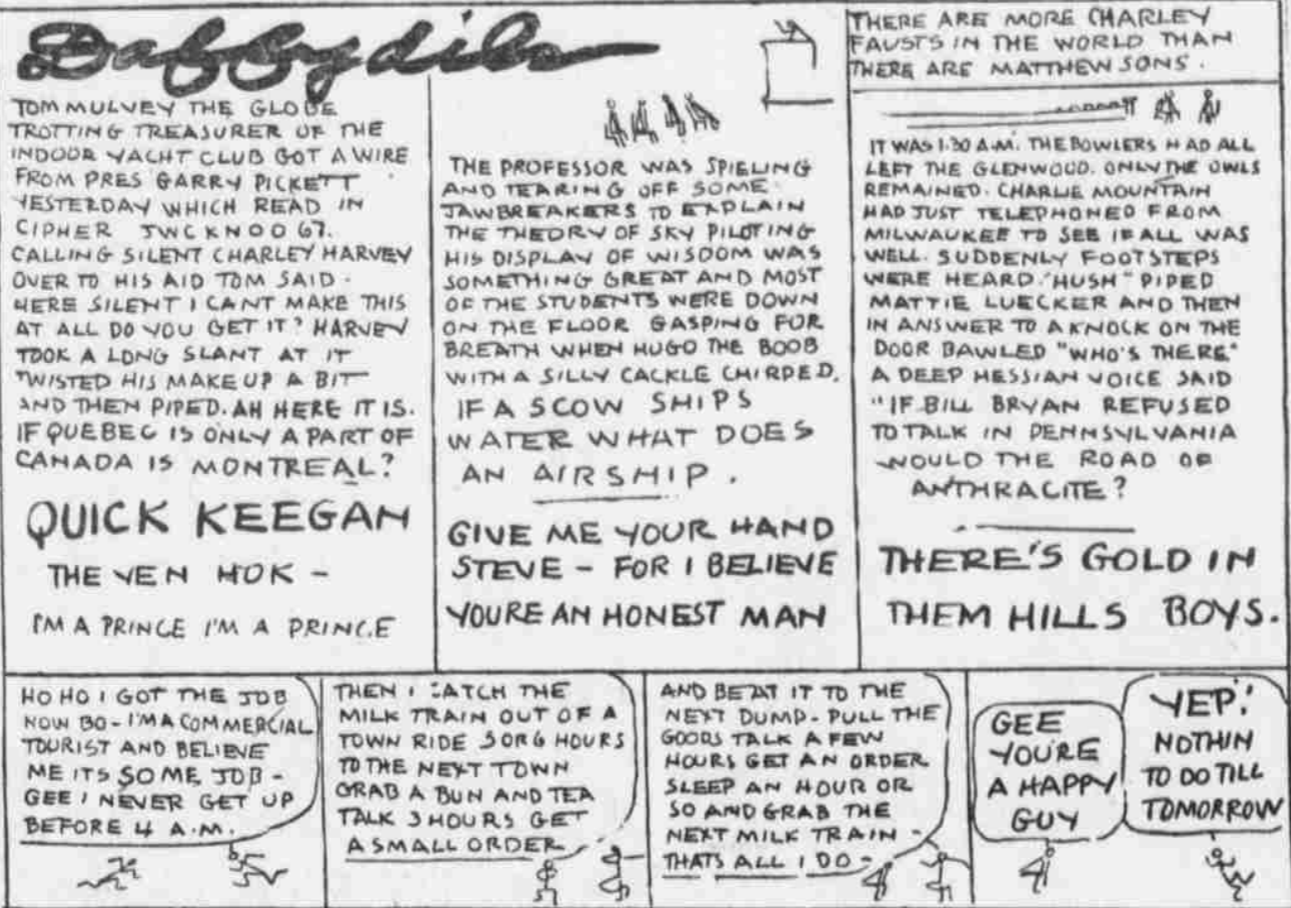 Daffydils
TOM MULVEY THE GLOBE
TROTTING TREASURER OF THE
INDOOR YACHT CLUB GOT A WIRE
FROM PRES GARRY PICKETT
YESTERDAY WHICH READ IN
CIPHER JWCKNOO 67.
CALLING SILENT CHARLEY HARVEY
OVER TO HIS AID TOM SAID.
HERE SILENT I CANT MAKE THIS
AT ALL DO YOU GET IT? HARVEY
TOOK A LONG SLANT AT IT
TWISTED HIS MAKE UP A BIT
AND THEN PIPED. AH HERE IT IS.
IF QUEBEC IS ONLY A PART OF
CANADA IS MONTREAL?
QUICK KEEGAN
THE YEN HOK -
I'M A PRINCE I'M A PRINCE
THE PROFESSOR WAS SPIELING
AND TEARING OFF SOME
JAWBREAKERS TO EXPLAIN
THE THEORY OF SKY PILOTING
HIS DISPLAY OF WISDOM WAS
SOMETHING GREAT AND MOST
OF THE STUDENTS WERE DOWN
ON THE FLOOR GASPING FOR
BREATH WHEN HUGO THE BOOB
WITH A SILLY CACKLE CHIRPED.
IF A SCOW SHIPS
WATER WHAT DOES
AN AIRSHIP.
GIVE ME YOUR HAND
STEVE - FOR I BELIEVE
YOURE AN HONEST MAN
THERE ARE MORE CHARLEY
FAUSTS IN THE WORLD THAN
THERE ARE MATTHEWSONS.
IT WAS 1:30 A.M. THE BOWLERS HAD ALL
LEFT THE GLENWOOD. ONLY THE OWLS
REMAINED. CHARLIE MOUNTAIN
HAD JUST TELEPHONED FROM
MILWAUKEE TO SEE IF ALL WAS
WELL. SUDDENLY FOOTSTEPS
WERE HEARD. "HUSH" PIPED
MATTIE LUECKER AND THEN
IN ANSWER TO A KNOCK ON THE
DOOR BAWLED "WHO'S THERE"
A DEEP HESSIAN VOICE SAID
"IF BILL BRYAN REFUSED
TO TALK IN PENNSYLVANIA
WOULD THE ROAD OF
ANTHRACITE?
THERE'S GOLD IN
THEM HILLS BOYS.
HO HO I GOT THE JOB
NOW BO - I'M A COMMERCIAL
TOURIST AND BELIEVE
ME ITS SOME JOB -
GEE I NEVER GET UP
BEFORE 4 A.M.
THEN I CATCH THE
MILK TRAIN OUT OF A
TOWN RIDE 5 OR 6 HOURS
TO THE NEXT TOWN
GRAB A BUN AND TEA
TALK 3 HOURS GET
A SMALL ORDER
AND BEAT IT TO THE
NEXT DUMP - PULL THE
GOODS TALK A FEW
HOURS GET AN ORDER
SLEEP AN HOUR OR
SO AND GRAB THE
NEXT MILK TRAIN -
THATS ALL I DO -
GEE
YOU'RE
A HAPPY
GUY
YEP!
NOTHIN
TO DO TILL
TOMORROW